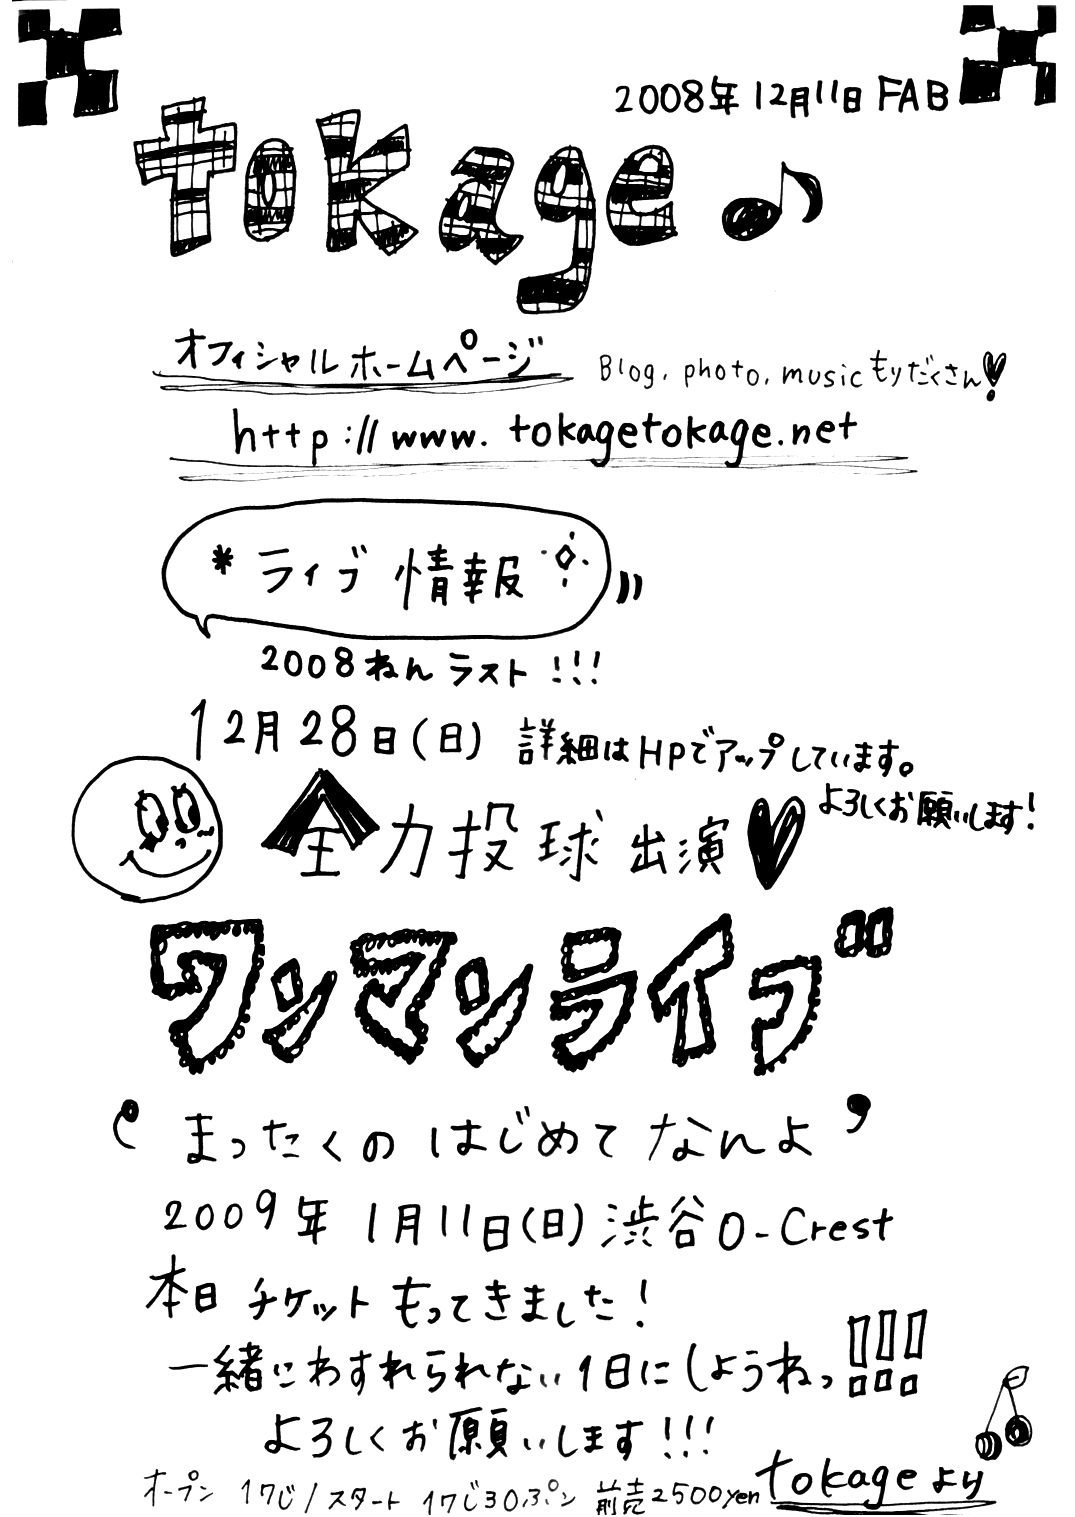 2008年12月11日 FAB
tokage♪
オフィシャルホームページ Blog, photo, music もりだくさん♥!
http://www.tokagetokage.net
*ライブ情報
2008ねんラスト!!!
12月28日(日) 詳細はHPでアップしています。
よろしくお願いします!
全力投球 出演♥
ワンマンライブ
‘まったくのはじめてなんよ’
2009年 1月11日(日) 渋谷O-Crest
本日チケットもってきました!
一緒にわすれられない1日にしようねっ!!!
よろしくお願いします!!!
オープン 17じ/スタート 17じ30ぷん 前売2500yen
tokageより